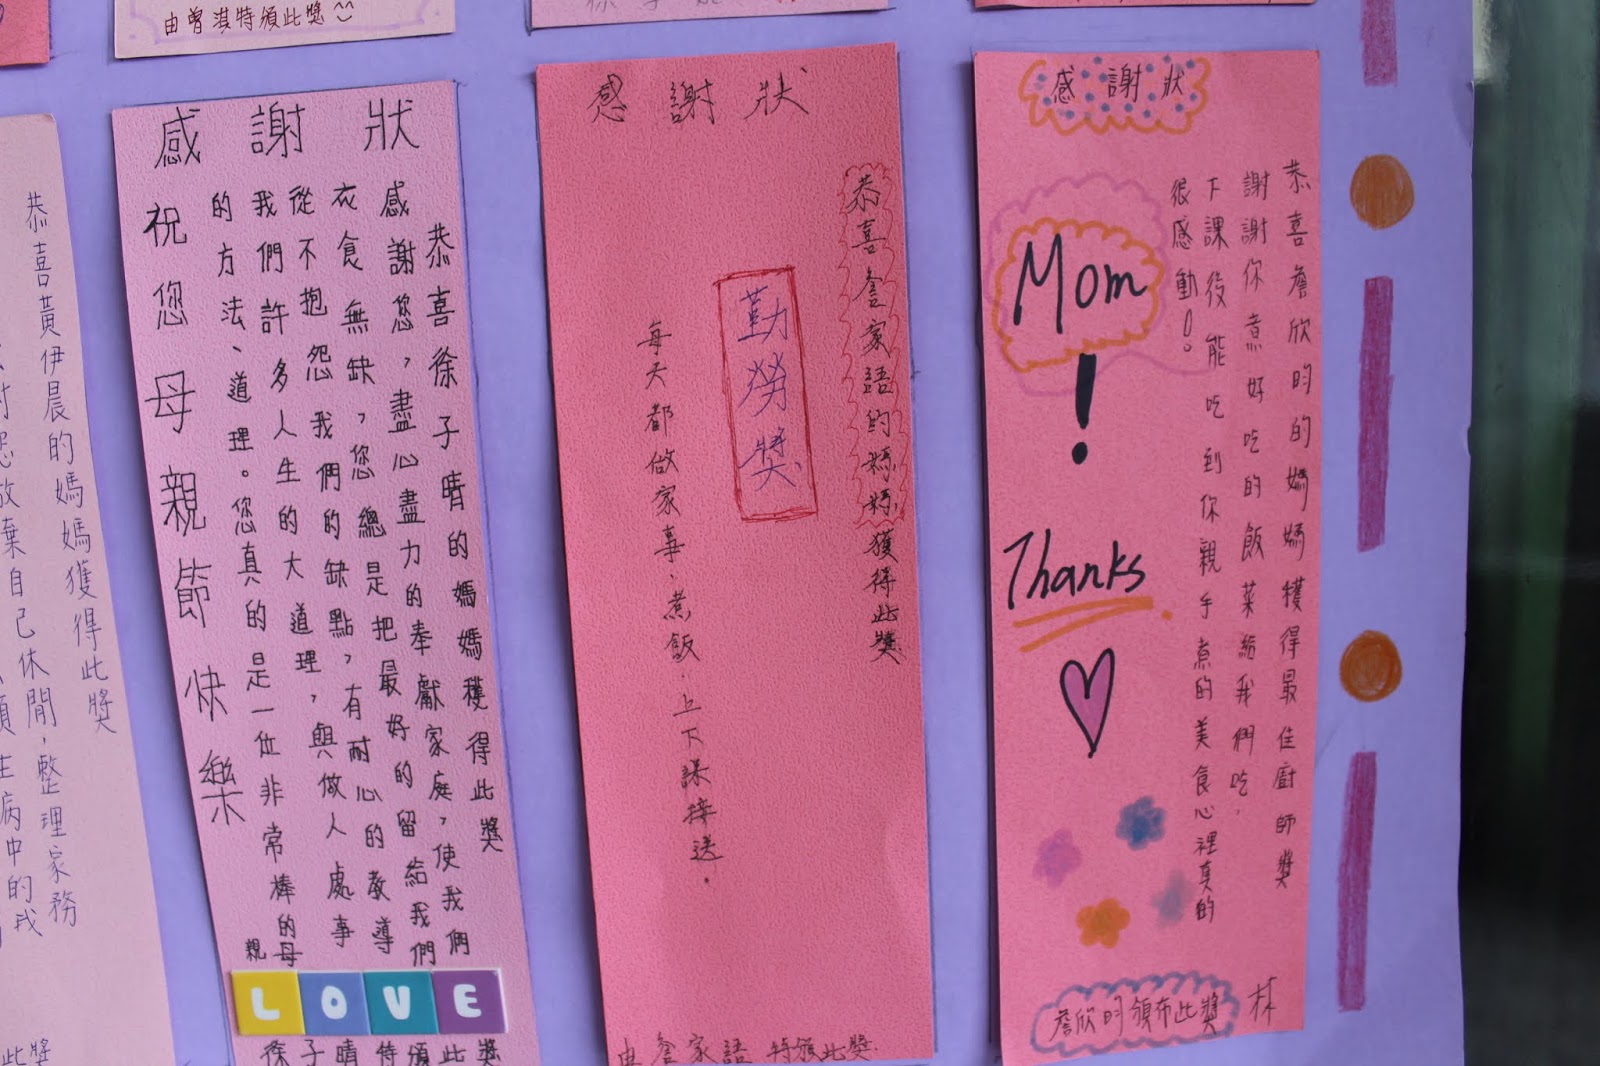 由曾淇特頒此獎^^
恭喜黃伊晨的媽媽獲得此獎
放棄自己休閒，整理家務
生病中的我
此獎
感謝狀
恭喜徐子晴的媽媽穫得此獎
感謝您，盡心盡力的奉獻家庭，使我們
衣食無缺，您總是把最好的留給我們
從不抱怨我們的缺點，有耐心的教導
我們許多人生的大道理，與做人處事
的方法、道理。您真的是一位非常棒的母親
祝您母親節快樂
LOVE
徐子晴特頒此獎
感謝狀
恭喜詹家語的媽媽獲得此獎
勤勞獎
每天都做家事、煮飯、上下課接送。
由詹家語特頒此獎
感謝狀
恭喜詹欣昀的媽媽穫得最佳廚師獎
謝謝你煮好吃的飯菜給我們吃，
下課後能吃到你親手煮的美食心裡真的
很感動!。
Mom!
Thanks
詹欣昀頒布此獎
林